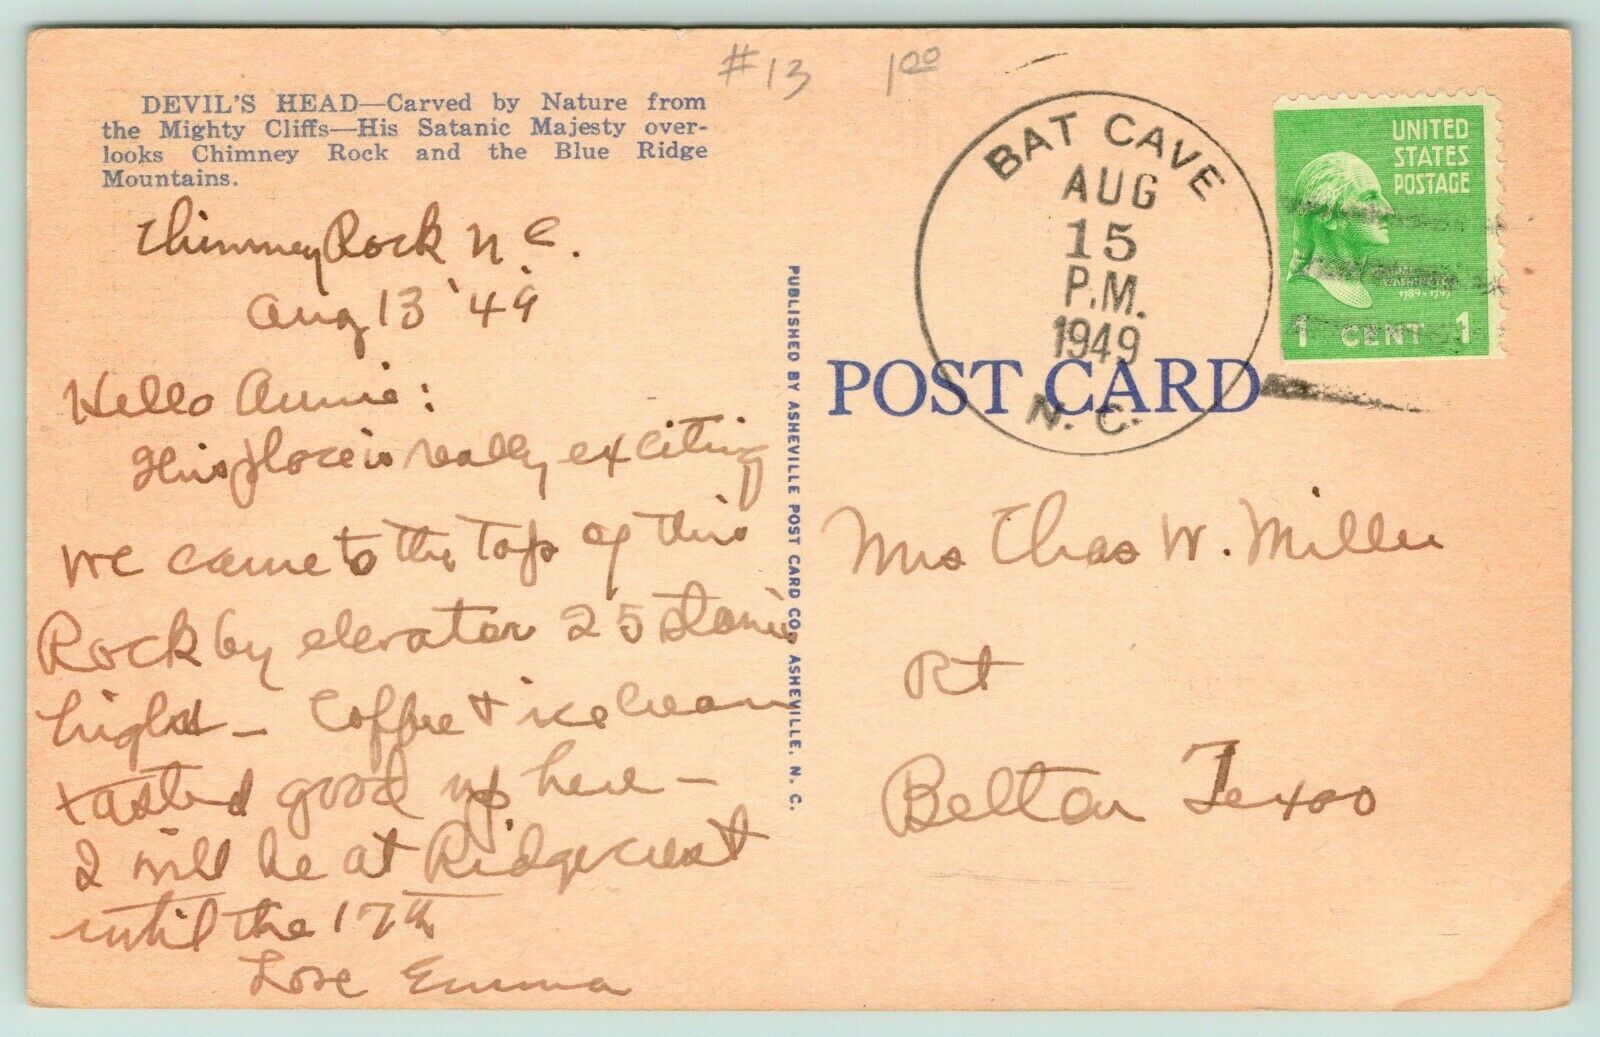 #13 1.00
DEVIL'S HEAD—Carved by Nature from
the Mighty Cliffs—His Satanic Majesty over-
looks Chimney Rock and the Blue Ridge
Mountains.
Chimney Rock N. C.
Aug 13 '49
Hello Annie:
This place is really exciting
We came to the top of this
Rock by elevator 25 stories
high - Coffee + ice cream
tasted good up here -
I will be at Ridgecrest
until the 17th
Love Emma
PUBLISHED BY ASHEVILLE POST CARD CO., ASHEVILLE, N. C.
BAT CAVE
AUG
15
P.M.
1949
N. C.
UNITED
STATES
POSTAGE
1789-1797
1 CENT 1
POST CARD
Mrs Chas W. Miller
Rt
Belton Texas